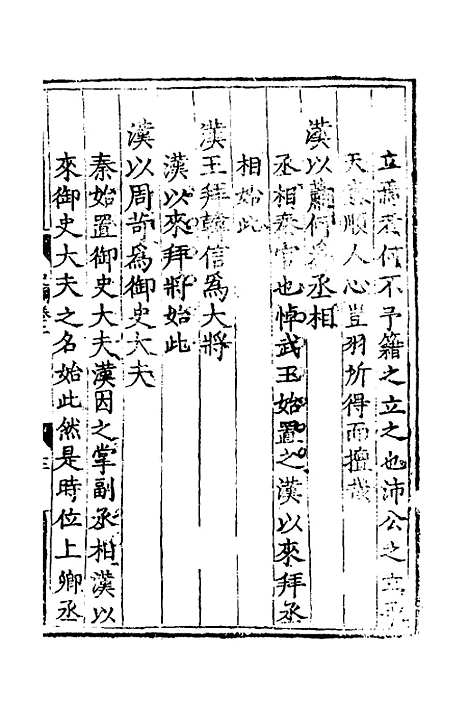 立焉君何不予籍之立之也沛公之立
天意順人心豈羽所得而擅哉
漢以蕭何為丞相
丞相秦官也悼武王始置之漢以來拜丞
相始此
漢王拜韓信為大將
漢以來拜將始此
漢以周苛為御史大夫
秦始置御史大夫漢因之掌副丞相漢以
來御史大夫之名始此然是時位上卿丞